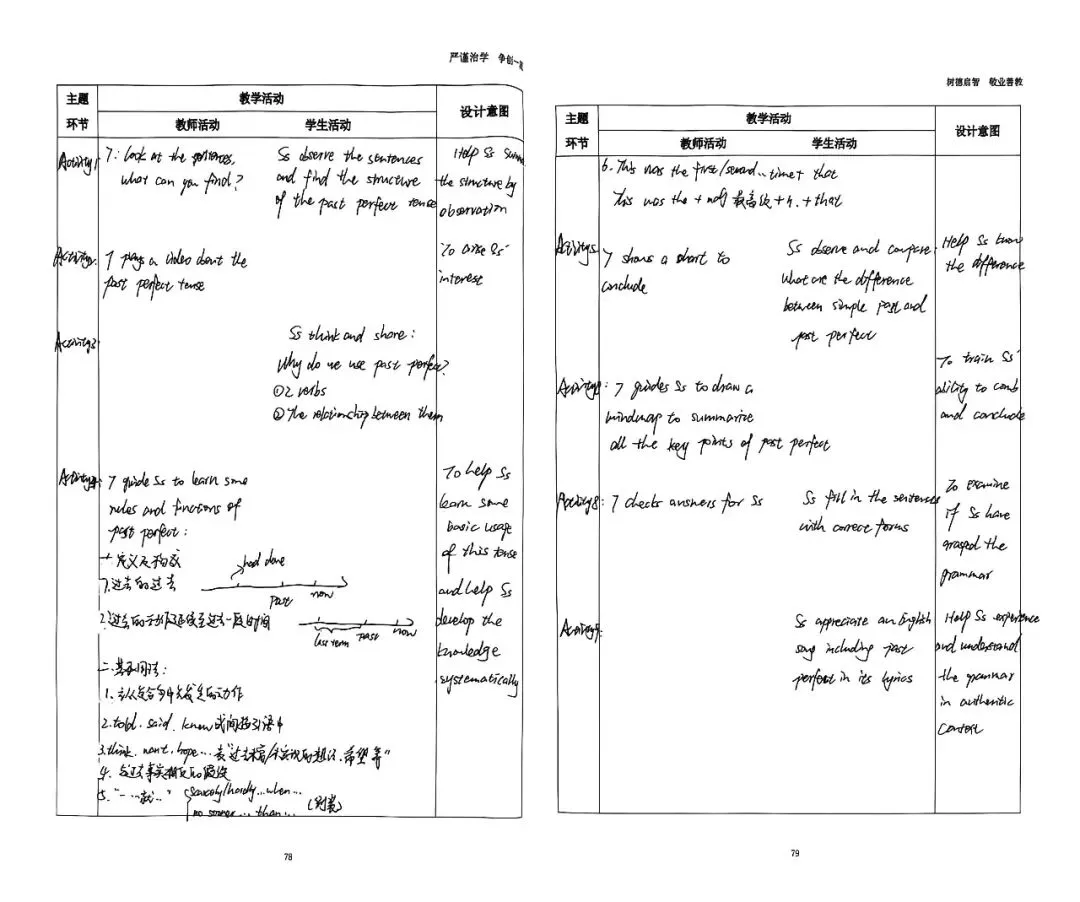 严谨治学 争创一
主题
环节
教学活动
教师活动 学生活动
设计意图
Activity1
T: Look at the sentences,
what can you find?
Ss observe the sentences
and find the structure
of the past perfect tense
Help Ss
the structure by
observation
Activity2
T plays a video about the
past perfect tense
To arise Ss'
interest
Activity3
Ss think and share:
Why do we use past perfect?
①2 verbs
②The relationship between them
Activity4
T guide Ss to learn some
rules and functions of
past perfect:
一.定义及构成
1.过去的过去
had done
past now
2.过去的动作延续至过去一段时间
last term past now
二.基本用法:
1.主从复合句中先发生的动作
2.told. said. know或间接引语中
3.think. want. hope... 表"过去未实现的想法.希望等"
4. 与过去事实相反的假设
5. "一...就..." scarcely/hardly...when...
no sooner... than... (倒装)
To help Ss
learn some
basic usage
of this tense
and help Ss
develop the
knowledge
systematically
78
树德启智 敬业善教
主题
环节
教学活动
教师活动 学生活动
设计意图
6. This was the first/second... time + that
This was the + adj 最高级 + n. + that
Activity5
T shows a chart to
conclude
Ss observe and compare:
What are the difference
between simple past and
past perfect
Help Ss know
the difference
Activity: T guides Ss to draw a
mindmap to summarize
all the key points of past perfect
To train Ss'
ability to comb
and conclude
Activity8: T checks answers for Ss
Ss fill in the sentences
with correct forms
To examine
if Ss have
grasped the
grammar
Activity9:
Ss appreciate an English
song including past
perfect in its lyrics
Help Ss experience
and understand
the grammar
in authentic
context
79